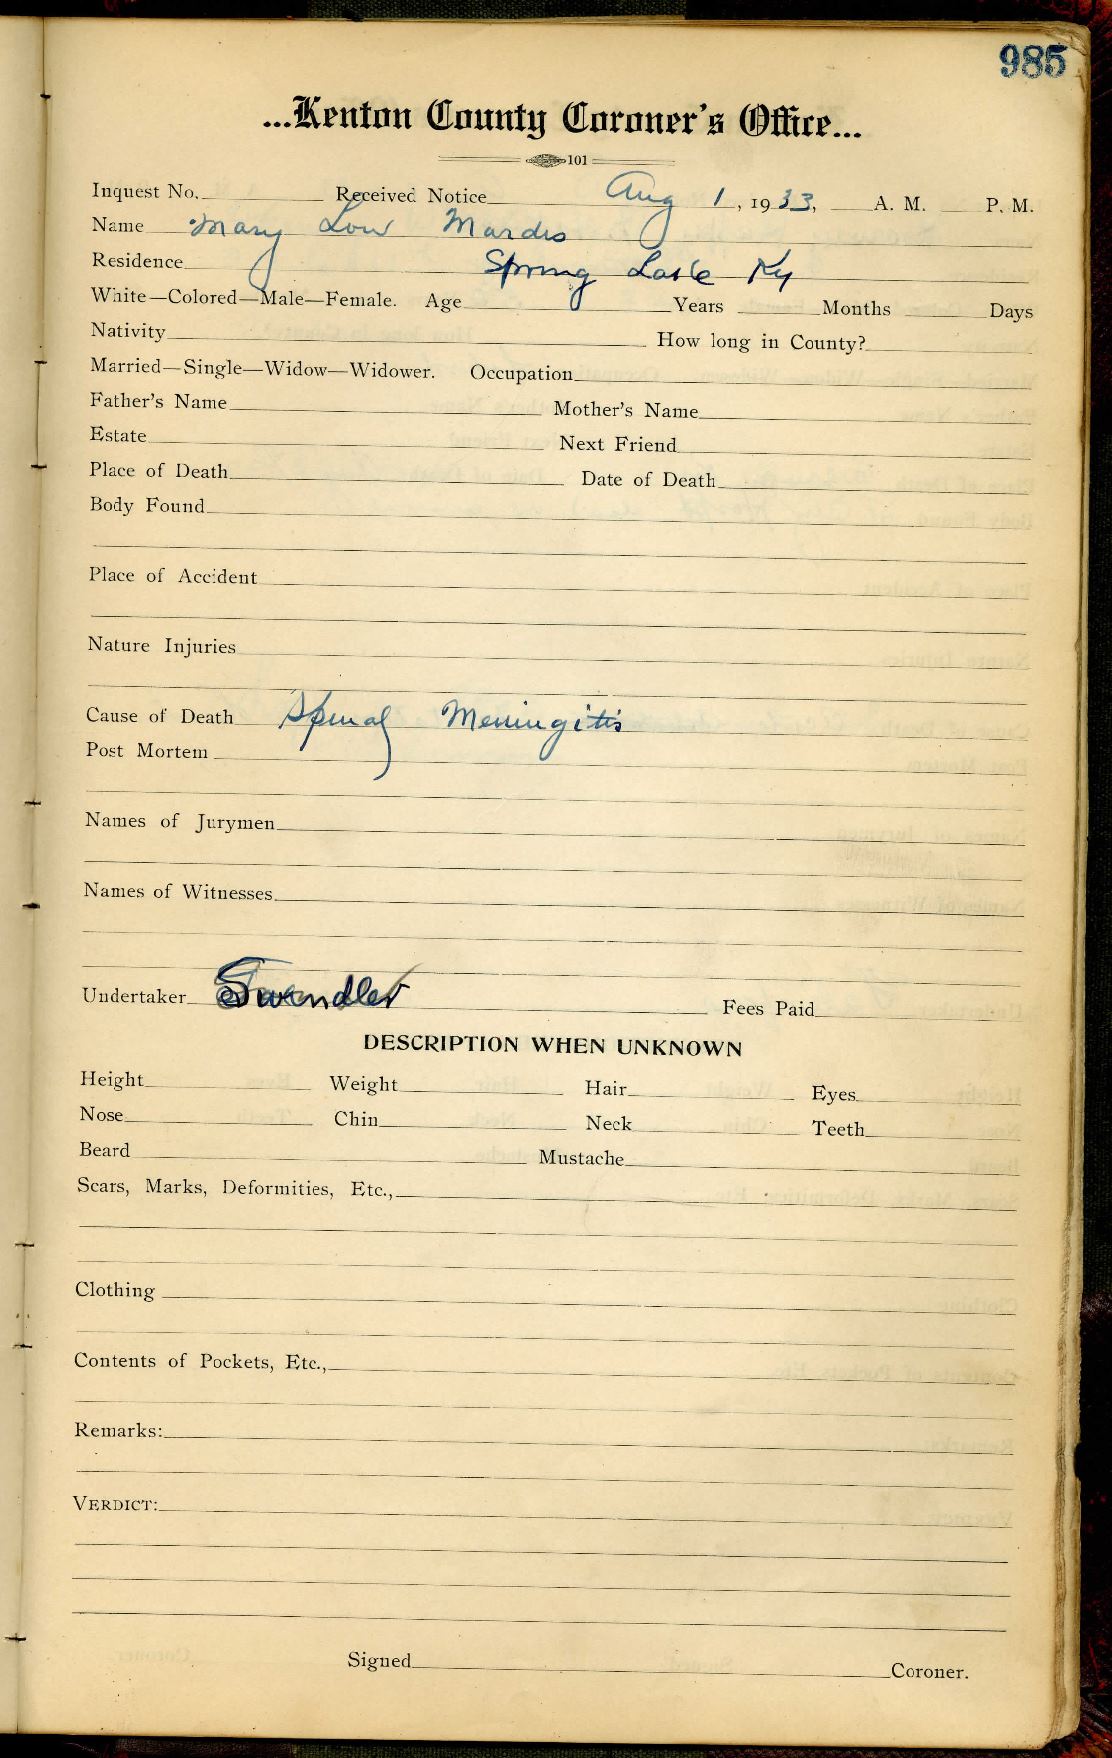 985
...Kenton County Coroner's Office...
101
Inquest No. Received Notice Aug 1, 1933, A. M. P. M.
Name Mary Low Mardis
Residence Spring Lake Ky
White—Colored—Male—Female. Age Years Months Days
Nativity How long in County?
Married—Single—Widow—Widower. Occupation
Father's Name Mother's Name
Estate Next Friend
Place of Death Date of Death
Body Found
Place of Accident
Nature Injuries
Cause of Death Spinal Meningitis
Post Mortem
Names of Jurymen
Names of Witnesses
Undertaker Swindler Fees Paid
DESCRIPTION WHEN UNKNOWN
Height Weight Hair Eyes
Nose Chin Neck Teeth
Beard Mustache
Scars, Marks, Deformities, Etc.,
Clothing
Contents of Pockets, Etc.,
Remarks:
VERDICT:
Signed Coroner.